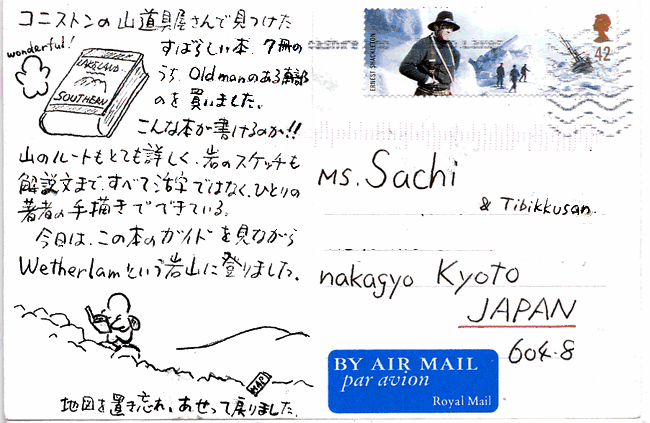 コニストンの山道具屋さんで見つけた
すばらしい本、7冊の
うち、Old manのある南部
のを買いました。
こんな本が書けるのか!!
山のルートもとても詳しく、岩のスケッチも
解説文まで、すべて活字ではなく、ひとりの
著者の手描きでできている。
今日は、この本のガイドを見ながら
Wetherlamという岩山に登りました。
wonderful!
LAKELAND
SOUTHERN
MAP
地図を置き忘れ、あせって戻りました。
ERNEST SHACKLETON
42
Ms. Sachi
& Tibikkusan
nakagyo Kyoto
JAPAN
604-8
BY AIR MAIL
par avion
Royal Mail